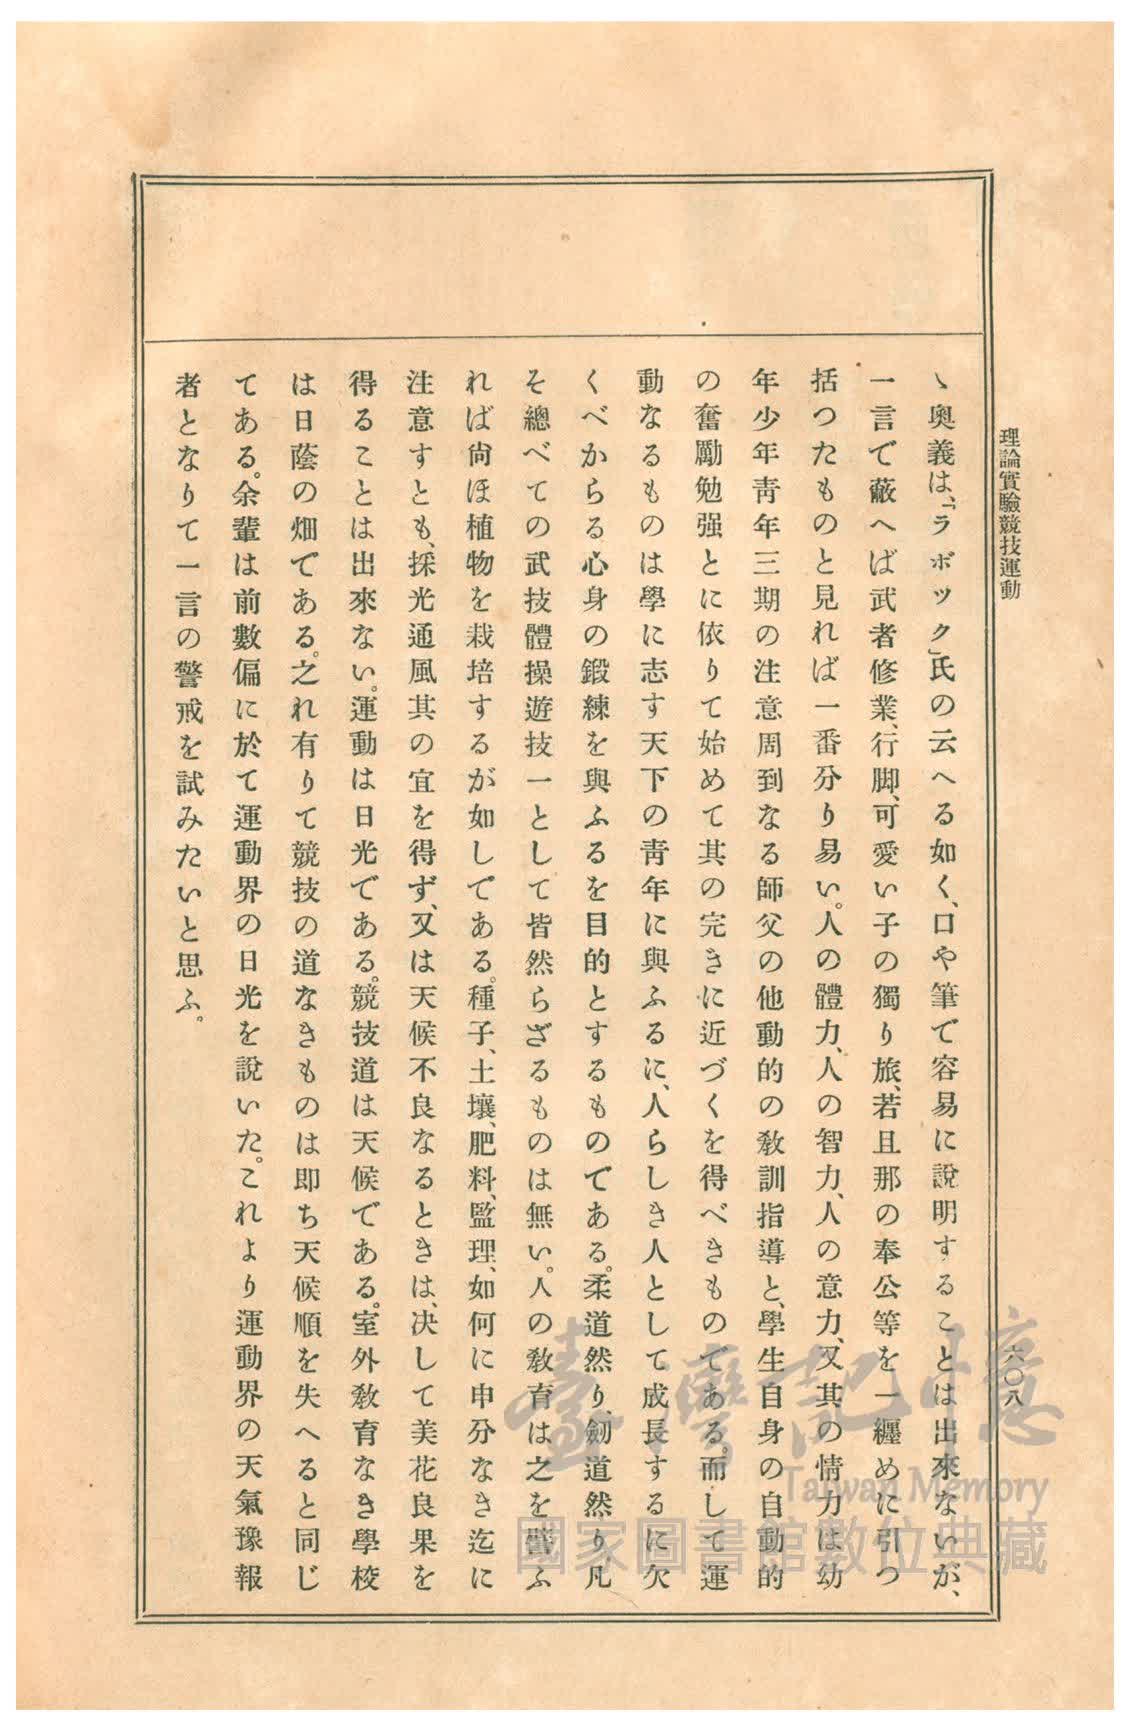 理論實驗競技運動
六〇八
ゝ奥義は、「ラボック」氏の云へる如く、口や筆で容易に說明することは出來ないが、
一言で蔽へば武者修業、行脚、可愛い子の獨り旅、若且那の奉公等を一纒めに引つ
括つたものと見れば一番分り易い。人の體力、人の智力、人の意力、又其の情力は幼
年少年靑年三期の注意周到なる師父の他動的の敎訓指導と、學生自身の自動的
の奮勵勉强とに依りて始めて其の完きに近づくを得べきものである。而して運
動なるものは學に志す天下の靑年に與ふるに、人らしき人として成長するに欠
くべからる心身の鍛練を與ふるを目的とするものである。柔道然り、劒道然り、凡
そ總べての武技體操遊技一として皆然らざるものは無い。人の敎育は之を譬ふ
れば尙ほ植物を栽培するが如しである。種子、土壤、肥料、監理、如何に申分なき迄に
注意すとも、採光通風其の宜を得ず、又は天候不良なるときは、決して美花良果を
得ることは出來ない。運動は日光である。競技道は天候である。室外敎育なき學校
は日蔭の畑である。之れ有りて競技の道なきものは卽ち天候順を失へると同じ
てある。余輩は前數偏に於て運動界の日光を說いた。これより運動界の天氣豫報
者となりて一言の警戒を試みたいと思ふ。
臺灣記憶
Taiwan Memory
國家圖書館數位典藏